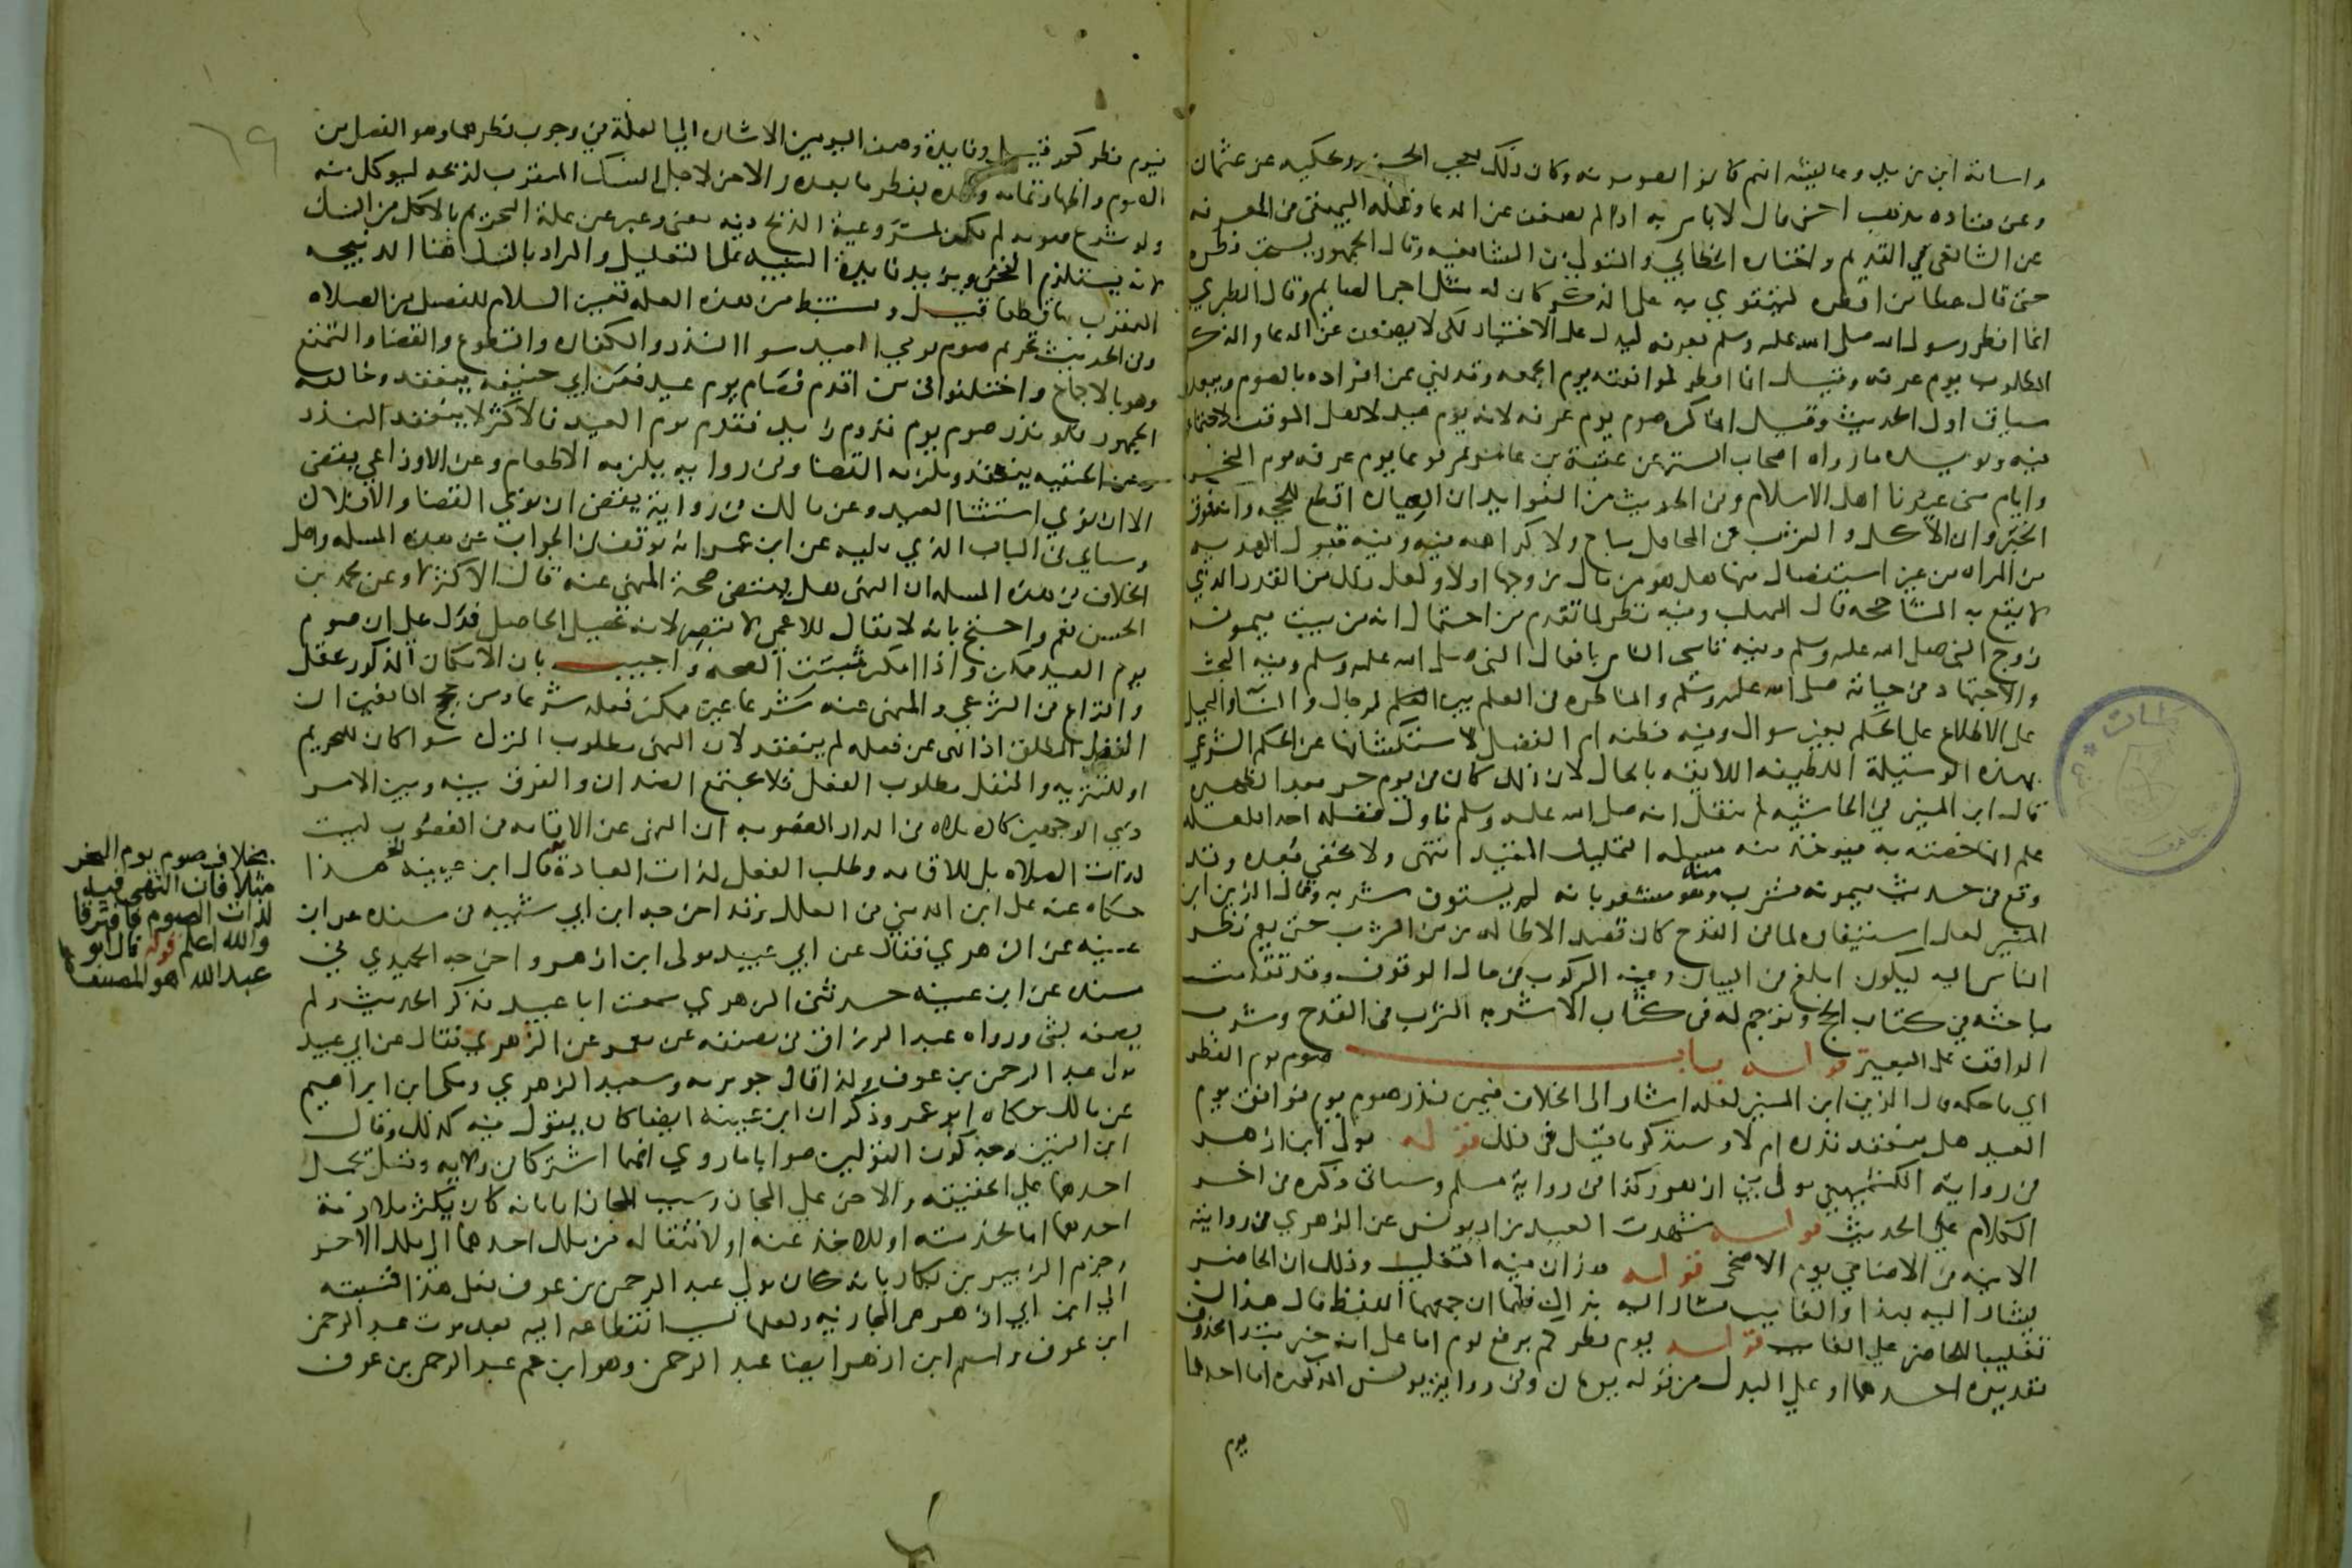 واسامة ابن زيد وعائشة انهم كانوا يصومونه وكان ذلك يعجب الحسن ويحكيه عن عثمان
وعن قتاده مذهب اخر قال لا باس به اذا لم يضعف عن الدعا ونقله البيهقي في المعرفه
عن الشافعي في القديم واختاره الخطابي والمتولي من الشافعيه وقال الجمهور يستحب فطره
حتى قال عطا من افطره ليتقوي به على الذكر كان له مثل اجر الصايم وقال الطبري
انما افطر رسول الله صلى الله عليه وسلم بعرفه ليدل على الاختيار لكي لا يضعف عن الدعا والذكر
المطلوب يوم عرفه وقيل انما افطر لموافقته يوم الجمعه وقد نهي عن افراده بالصوم ويبعده
سياق اول الحديث وقيل انما كره صوم يوم عرفه لانه يوم عيد لاهل الموقف لاجتماعهم
فيه ويويده ما رواه اصحاب السنن عن عقبة بن عامر مرفوعا يوم عرفه ويوم النحر
وايام منى عيدنا اهل الاسلام وفي الحديث من الفوايد ان العيان اقطع للحجه وانه فوق
الخبر وان الاكل والشرب في المحافل مباح ولا كراهه فيه وفيه قبول الهديه
من المراه من غير استفصال منها هل هو من مال زوجها اولا ولعل ذلك من القدر الذي
لا يقع به المشاححه قال المهلب وفيه نظر لما تقدم من احتمال انه من بيت ميمونه
زوج النبي صلى الله عليه وسلم وفيه تاسي الناس بافعال النبي صلى الله عليه وسلم وفيه البحث
والاجتهاد في حياته صلى الله عليه وسلم والمناظره في العلم بين الرجال والنسا والتحيل
على الاطلاع على الحكم بغير سوال وفيه فطنه ام الفضل لاستكشافها عن الحكم الشرعي
بهذه الوسيلة اللطيفه اللايقه بالحال لان ذلك كان في يوم حر بعد الظهيره
قال ابن المنير في الحاشيه لم ينقل انه صلى الله عليه وسلم ناول فضله احدا فلعله
علم انها خصته به فيوخذ منه مسله التمليك المقيد انتهى ولا يخفي بعده وقد
وقع في حديث ميمونه فشرب منه وهو مشعر بانه لم يستوف شربه وقال الزين ابن
المنير لعل استيفاه لما في القدح كان قصد الاطاله من زمن الشرب حتى يعم نظر
الناس اليه ليكون ابلغ في البيان وفيه الركوب في حال الوقوف وقد تقدمت
مباحثه في كتاب الحج وترجم له في كتاب الاشربه الشرب في القدح وشرب
الواقف على البعير قوله باب صوم يوم الفطر
اي ما حكمه قال الزين ابن المنير لعله اشار الى الخلاف فيمن نذر صوم يوم فوافق يوم
العيد هل ينعقد نذره ام لا وسنذكر ما قيل في ذلك قوله مولى ابن ازهر
في رواية الكشميهني مولى بني ازهر وكذا في رواية مسلم وسياتي ذكره في اخر
الكلام علي الحديث قوله شهدت العيد زاد يونس عن الزهري في روايته
الاتيه في الاضاحي يوم الاضحى قوله هذان فيه التغليب وذلك ان الحاضر
يشار اليه بهذا والغايب يشار اليه بذاك فلما ان جمعهما اللفظ قال هذان
تغليبا للحاضر علي الغايب قوله يوم فطركم برفع يوم اما على انه خبر مبتدا محذوف
تقديره احدهما او علي البدل من قوله يومان وفي رواية يونس المذكوره اما احدهما
يوم
٦٩
فيوم فطركم قيل وفايدة وصف اليومين الاشاره الي العلة في وجوب فطرهما وهو الفصل من
الصوم واظهار تمامه وحده بفطر ما بعده والاخر لاجل النسك المتقرب بذبحه ليوكل منه
ولو شرع صومه لم يكن لمشروعية الذبح فيه معنى وعبر عن علة التحريم بالاكل من النسك
لانه يستلزم النحر ويزيد فايدة التنبيه على التعليل والمراد بالنسك هنا الذبيحه
المتقرب بها قطعا قيل ويستنبط من هذه العله تعيين السلام للفصل من الصلاه
وفي الحديث تحريم صوم يومي العيد سوا النذر والكفاره والتطوع والقضا والتمتع
وهو بالاجماع واختلفوا في من اقدم فصام يوم عيد فعن ابي حنيفه ينعقد وخالفه
الجمهور فلو نذر صوم يوم قدوم زيد فقدم يوم العيد فالاكثر لا ينعقد النذر
وعن الحنفيه ينعقد ويلزمه القضا وفي روايه يلزمه الاطعام وعن الاوزاعي يقضى
الا ان نوي استثنا العيد وعن مالك في رواية يقضى ان نوي القضا والا فلا
وسياتي في الباب الذي يليه عن ابن عمر انه توقف في الجواب عن هذه المسله واصل
الخلاف في هذه المسله ان النهي هل يقتضى صحة المنهي عنه قال الاكثر لا وعن محمد بن
الحسن نعم واحتج بانه لا يقال للاعمي لا تبصر لانه تحصيل الحاصل فدل علي ان صوم
يوم العيد ممكن واذا امكن ثبتت الصحه واجيب بان الامكان المذكور عقلي
والنزاع في الشرعي والمنهي عنه شرعا غير ممكن فعله شرعا ومن حجج المانعين ان
النفل المطلق اذا نهى عن فعله لم ينعقد لان النهي مطلوب الترك سوا كان للتحريم
او للتنزيه والنفل مطلوب الفعل فلا يجتمع الضدان والفرق بينه وبين الامر
ذي الوجهين كالصلاه في الدار المغصوبه ان النهي عن الاقامه في المغصوب ليست
لذات الصلاه بل للاقامه وطلب الفعل لذات العبادة قوله قال ابن عيينه هذا
حكاه عنه علي ابن المديني في العلل وقد اخرجه ابن ابي شيبه في مسنده عن ابن
عيينه عن الزهري فقال عن ابي عبيد مولى ابن ازهر واخرجه الحميدي في
مسنده عن ابن عيينه حدثني الزهري سمعت ابا عبيد فذكر الحديث ولم
يصفه بشي ورواه عبد الرزاق في مصنفه عن معمر عن الزهري فقال عن ابي عبيد
مولى عبد الرحمن بن عوف وكذا قال جويريه وسعيد الزهري ومكي ابن ابراهيم
عن مالك حكاه ابو عمر وذكر ان ابن عيينه ايضا كان يقول فيه كذلك وقال
ابن التين وجه كون القولين صوابا ما روي انهما اشتركا في ولايه وقيل يحمل
احدهما علي الحقيقه والاخر علي المجاز وسبب المجاز اما بانه كان يكثر ملازمة
احدهما اما لخدمته او للاخذ عنه او لانتقاله من ملك احدهما الي ملك الاخر
وجزم الزبير بن بكار بانه كان مولي عبد الرحمن بن عوف فعلى هذا فنسبته
الي ابن ازهر هي المجازيه ولعلها بسبب انقطاعه اليه بعد موت عبد الرحمن
ابن عوف واسم ابن ازهر ايضا عبد الرحمن وهو ابن عم عبد الرحمن بن عوف
بخلاف صوم يوم النحر
مثلا فان النهي فيه
لذات الصوم فافترقا
والله اعلم قوله قال ابو
عبد الله هو المصنف